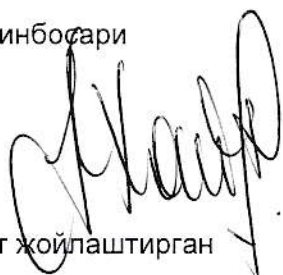 инбосари
г жойлаштирган